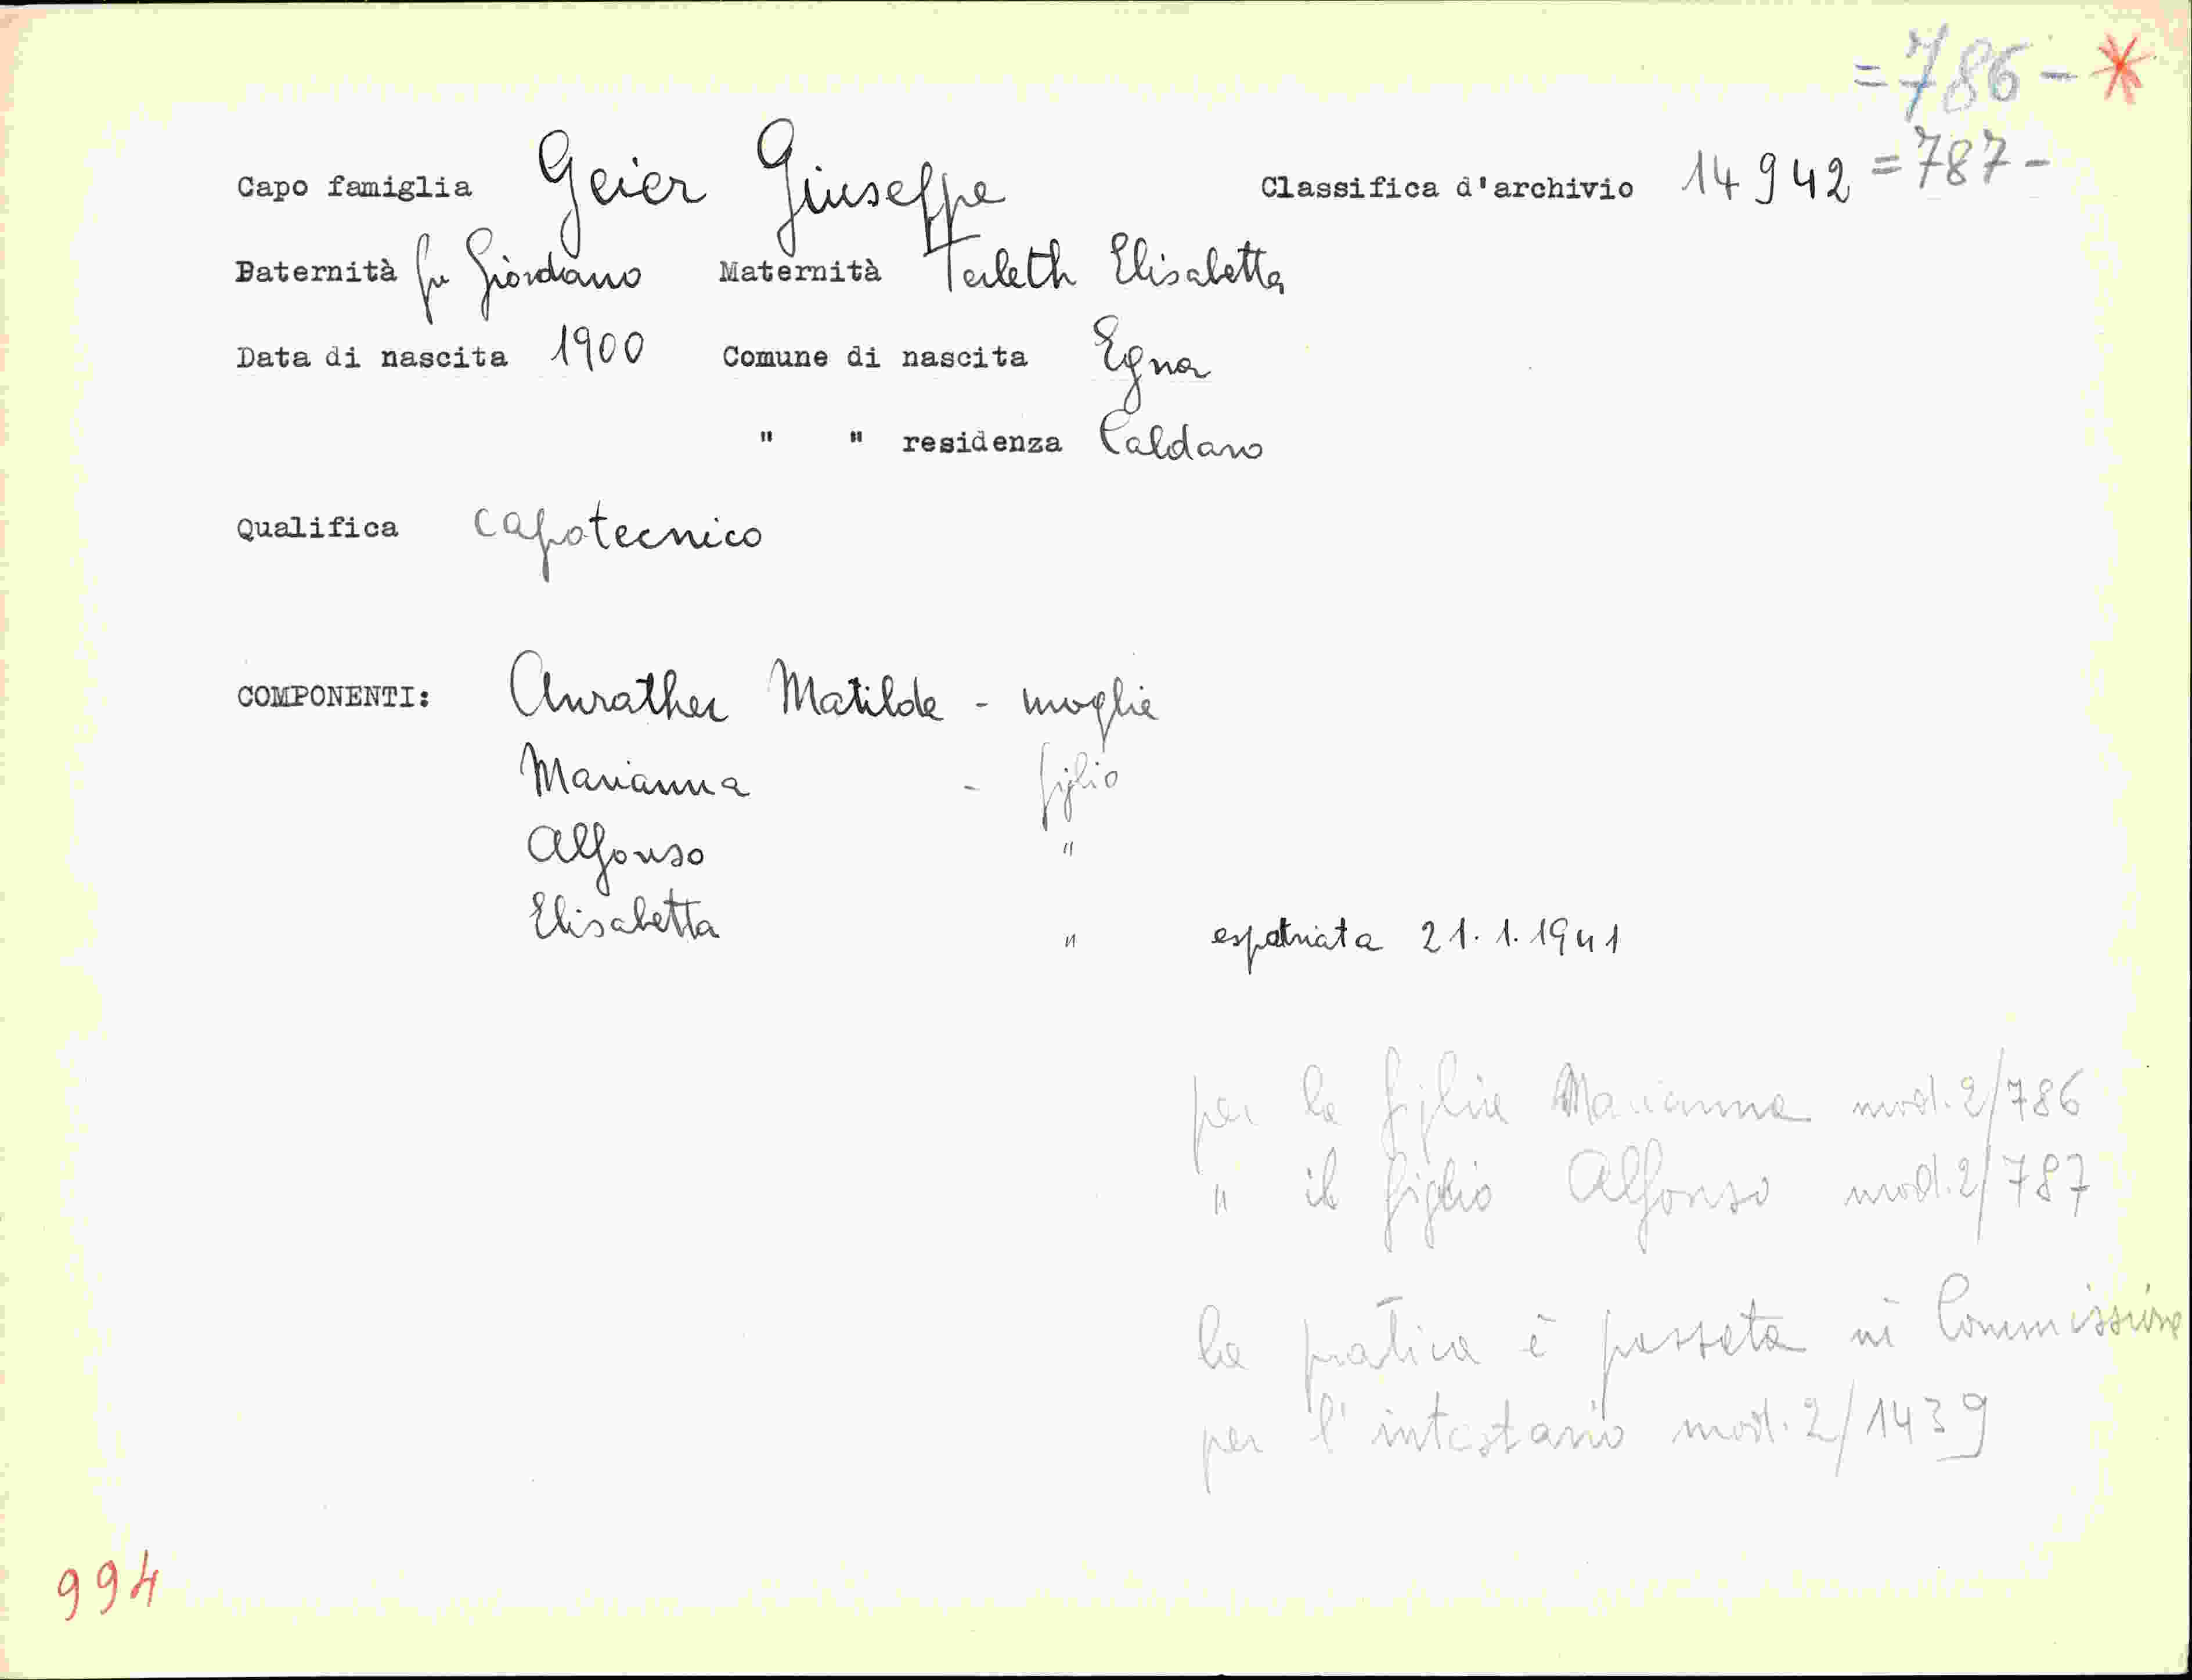 =786- *
Capo famiglia Geier Giuseppe Classifica d'archivio 14942 =787-
Paternità fu Giordano Maternità Terleth Elisabetta
Data di nascita 1900 Comune di nascita Egna
" " residenza Caldaro
Qualifica capotecnico
COMPONENTI: Anrather Matilde - moglie
Marianna - figlio
Alfonso "
Elisabetta " espatriata 21.1.1941
per la figlia Marianna mod. 2/786
" il figlio Alfonso mod. 2/787
la pratica è passata in Commissione
per l'intestario mod. 2/1439
994